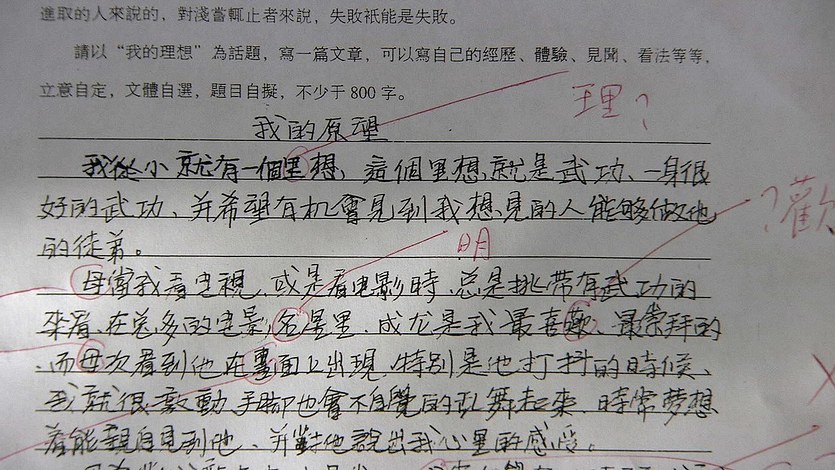 進取的人來說的，對淺嘗輒止者來說，失敗衹能是失敗。
請以“我的理想”為話題，寫一篇文章，可以寫自己的經歷、體驗、見聞、看法等等，
立意自定，文體自選，題目自擬，不少于800字。
理？
我的原望
我從小就有一個里想、這個里想就是武功、一身很
好的武功、并希望有机會見到我想見的人能够做他
？歡
的徒弟。
明
母當我看电視、或是看电影時、总是挑帶有武功的
來看、在众多的电影名星里、成龙是我最喜歡、最崇拜的
、而母次看到他在畫面上出現、特别是他打抖的時候、
我就很激動、手脚也會不自覺的乱舞起來、時常梦想
着能親自見到他、并對他說出我心里的感受。